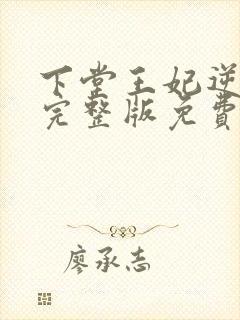 下堂王妃逆
完整版免費
廖承志